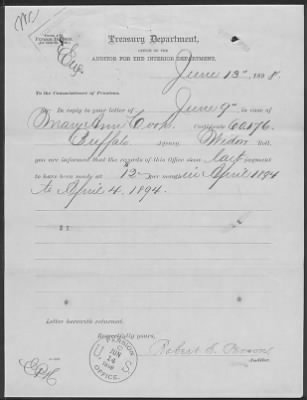 Treasury Department,
OFFICE OF THE
AUDITOR FOR THE INTERIOR DEPARTMENT,
June 13", 1898.
To the Commissioner of Pensions.
Sir:
In reply to your letter of June 9" in case of
Mary Ann Cook, Certificate 60176,
Buffalo Agency, Widow Roll,
you are informed that the records of this Office show last payment
to have been made at 12— per month in April 1894
to April 4, 1894.
Letter herewith returned.
Respectfully yours,
Robert S. Person
Auditor.
U.S. PENSION OFFICE.
JUN
14
1898